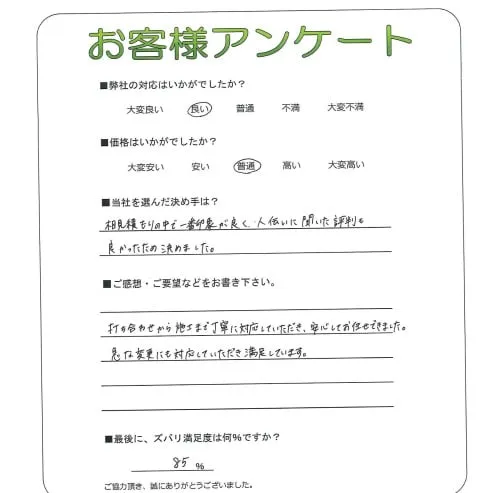 お客様アンケート
■弊社の対応はいかがでしたか？
大変良い 良い 普通 不満 大変不満
■価格はいかがでしたか？
大変安い 安い 普通 高い 大変高い
■当社を選んだ決め手は？
相見積もりの中で一番印象が良く、人伝いに聞いた評判も
良かったため決めました。
■ご感想・ご要望などをお書き下さい。
打ち合わせから施工まで丁寧に対応していただき、安心してお任せできました。
急な変更にも対応していただき満足しています。
■最後に、ズバリ満足度は何％ですか？
85 ％
ご協力頂き、誠にありがとうございました。